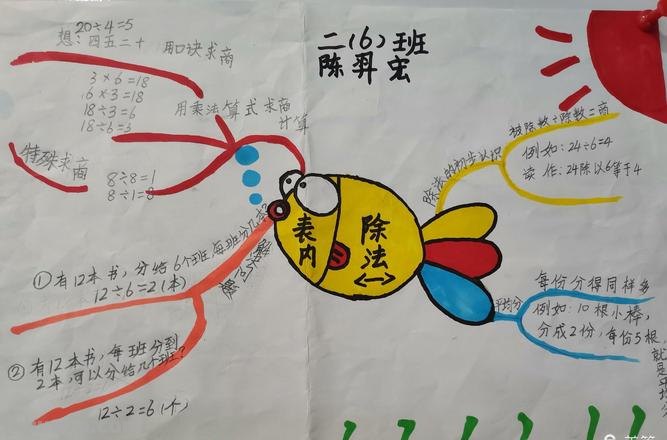 二(6)班
陈羿宏
20÷4=5
想：四五二十
用口诀求商
3×6=18
6×3=18
18÷3=6
18÷6=3
用乘法算式求商
计算
特殊求商
8÷8=1
8÷1=8
表内
除法
除法的初步认识
被除数÷除数=商
例如：24÷6=4
读作：24除以6等于4
①有12本书，分给6个班,每班分几本?
12÷6=2(本)
②有12本书，每班分到
2本,可以分给几个班?
12÷2=6(个)
平均分
每份分得同样多
例如：10根小棒，
分成2份，每份5根，
就是平均分